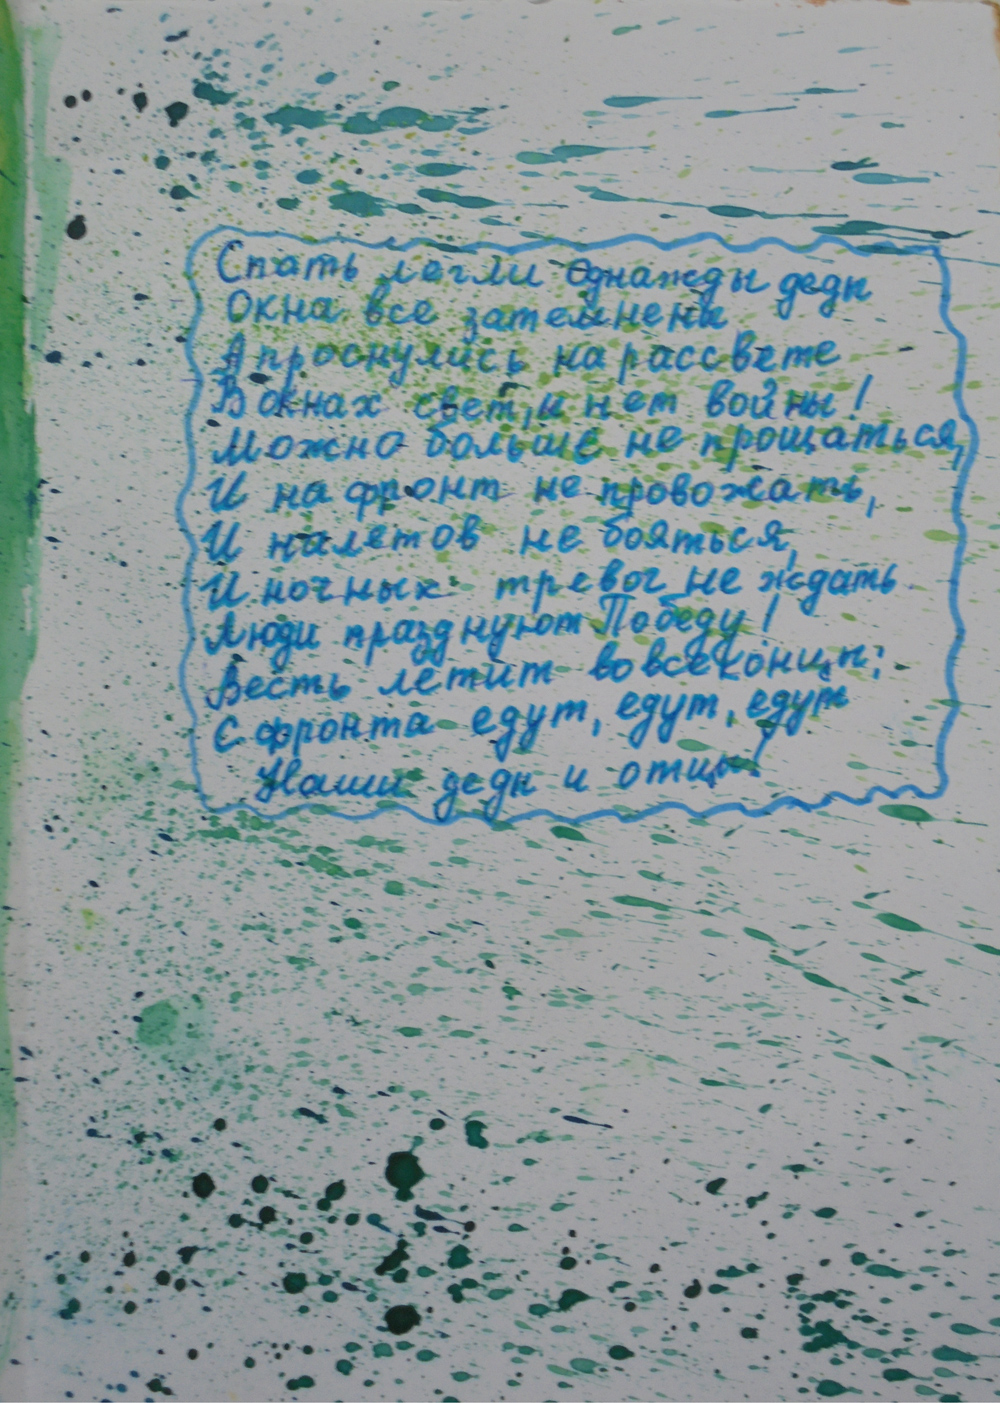 Спать легли однажды деды
Окна все затемнены
А проснулись на рассвете
В окнах свет, и нет войны!
Можно больше не прощаться,
И на фронт не провожать,
И налетов не бояться,
И ночных тревог не ждать
Люди празднуют Победу!
Весть летит во все концы:
С фронта едут, едут, едут
Наши деды и отцы!